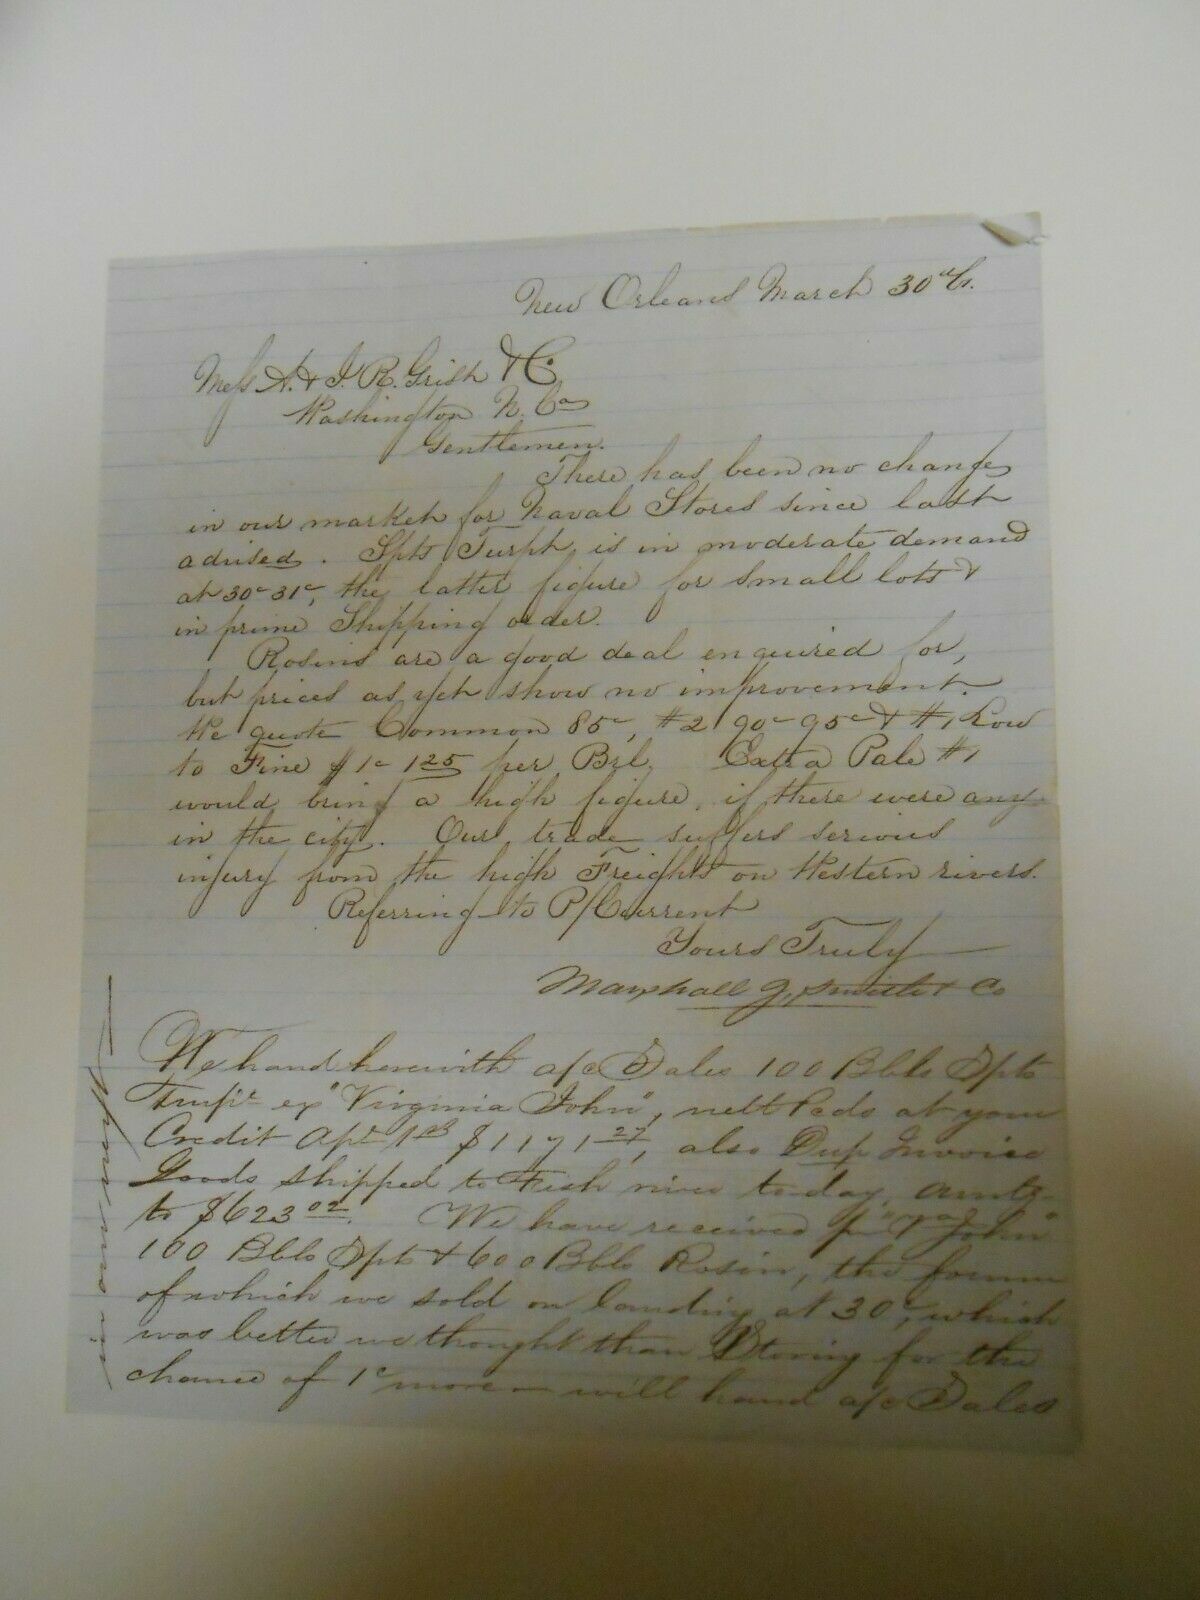 New Orleans March 30th
Mess A. & J. R. Grist & Co
Washington N. Ca
Gentlemen.
There has been no change
in our market for Naval Stores since last
advised. Spts Turpt is in moderate demand
at 30c 31c, the latter figure for small lots &
in prime Shipping order.
Rosins are a good deal enquired for,
but prices as yet show no improvement.
We quote Common 85c, #2 90c 95c & #1 Low
to Fine $1 c 1 25 per Brl. Extra Pale #1
would bring a high figure, if there were any
in the city. Our trade suffers serious
injury from the high Freights on Western rivers.
Referring to P/Current
Yours Truly
Marshall J. Smith & Co
We hand herewith a/c Sales 100 Bbls Spts
Turpt ex "Virginia John", nett Pcds at your
Credit Apl $1171 27, also Dup Invoice
Goods shipped to Fish river to-day, amtg
to $623 02. We have received pr John"
100 Bbls Spts & 600 Bbls Rosin, the former
of which we sold on landing at 30c, which
was better we thought than Storing for the
chance of 1c more – will hand a/c Sales
in